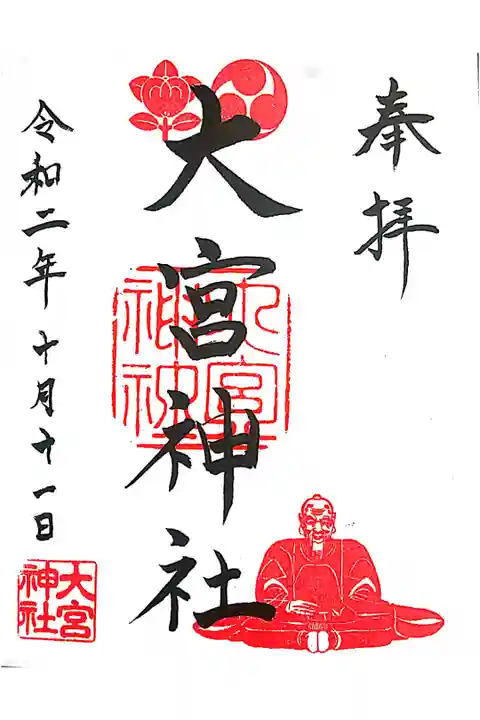 奉拝
大宮神社
大宮神社
令和二年十月十一日
大宮
神社